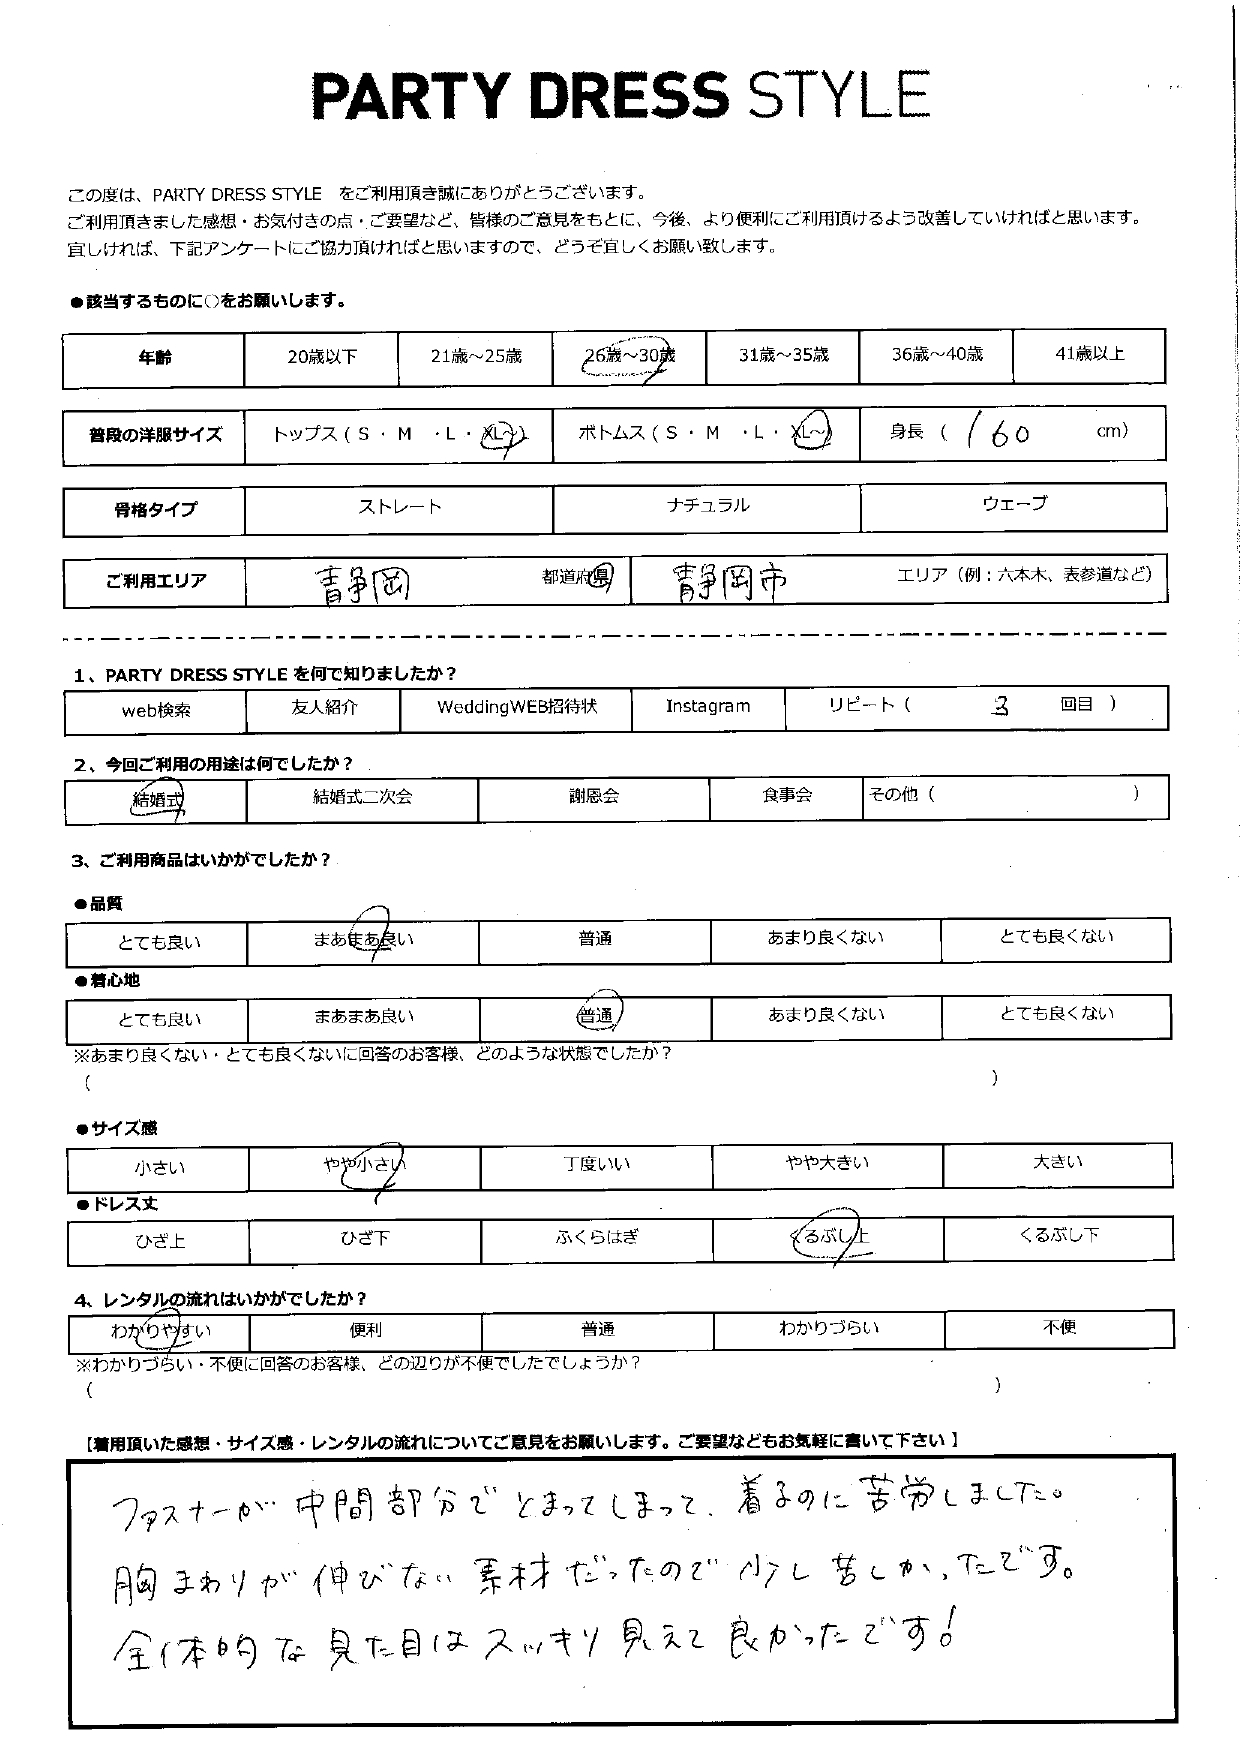 PARTY DRESS STYLE
この度は、PARTY DRESS STYLE をご利用頂き誠にありがとうございます。
ご利用頂きました感想・お気付きの点・ご要望など、皆様のご意見をもとに、今後、より便利にご利用頂けるよう改善していければと思います。
宜しければ、下記アンケートにご協力頂ければと思いますので、どうぞ宜しくお願い致します。
●該当するものに○をお願いします。
年齢 20歳以下 21歳～25歳 26歳～30歳 31歳～35歳 36歳～40歳 41歳以上
普段の洋服サイズ トップス（S・M・L・XL～） ボトムス（S・M・L・XL～） 身長（160 cm）
骨格タイプ ストレート ナチュラル ウェーブ
ご利用エリア 静岡 都道府県 静岡市 エリア（例：六本木、表参道など）
1、PARTY DRESS STYLEを何で知りましたか？
web検索 友人紹介 WeddingWEB招待状 Instagram リピート（ 3 回目 ）
2、今回ご利用の用途は何でしたか？
結婚式 結婚式二次会 謝恩会 食事会 その他（ ）
3、ご利用商品はいかがでしたか？
●品質
とても良い まあまあ良い 普通 あまり良くない とても良くない
●着心地
とても良い まあまあ良い 普通 あまり良くない とても良くない
※あまり良くない・とても良くないに回答のお客様、どのような状態でしたか？
（ ）
●サイズ感
小さい やや小さい 丁度いい やや大きい 大きい
●ドレス丈
ひざ上 ひざ下 ふくらはぎ くるぶし上 くるぶし下
4、レンタルの流れはいかがでしたか？
わかりやすい 便利 普通 わかりづらい 不便
※わかりづらい・不便に回答のお客様、どの辺りが不便でしたでしょうか？
（ ）
【着用頂いた感想・サイズ感・レンタルの流れについてご意見をお願いします。ご要望などもお気軽に書いて下さい】
ファスナーが中間部分でとまってしまって、着るのに苦労しました。
胸まわりが伸びない素材だったので少し苦しかったです。
全体的な見た目はスッキリ見えて良かったです！